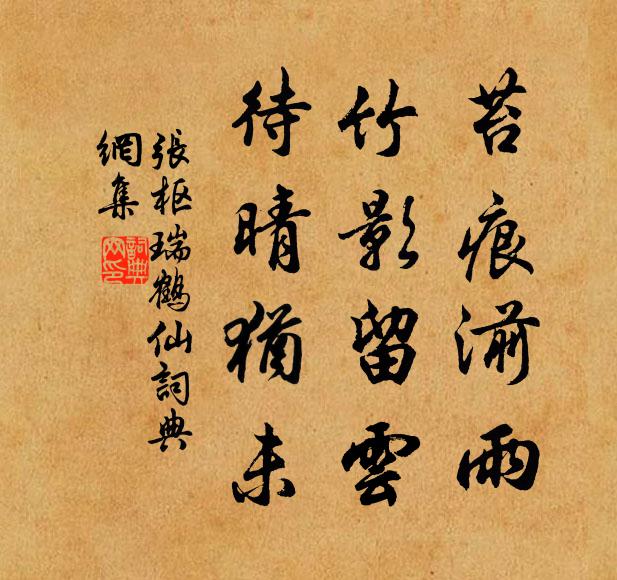 苔痕湔雨
竹影留雲
待晴猶未
張枢瑞鶴仙詞典
網集
詞典
网印